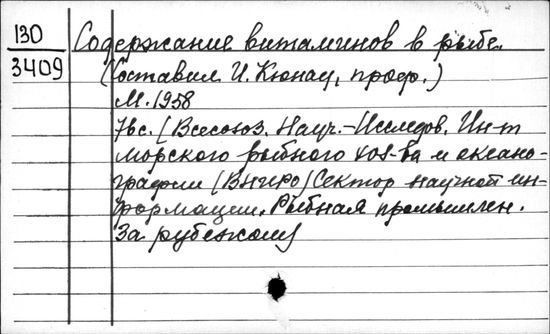 130 Содержание витаминов в рыбе.
3409 (Составил И. Кюнау, проф.)
М. 1958
76с. (Всесоюз. Науч.-Исслед. Ин-т
морского рыбного хоз-ва и океано-
графии (ВНИРО) Сектор научной ин-
формации. Рыбная промышлен.
за рубежом)